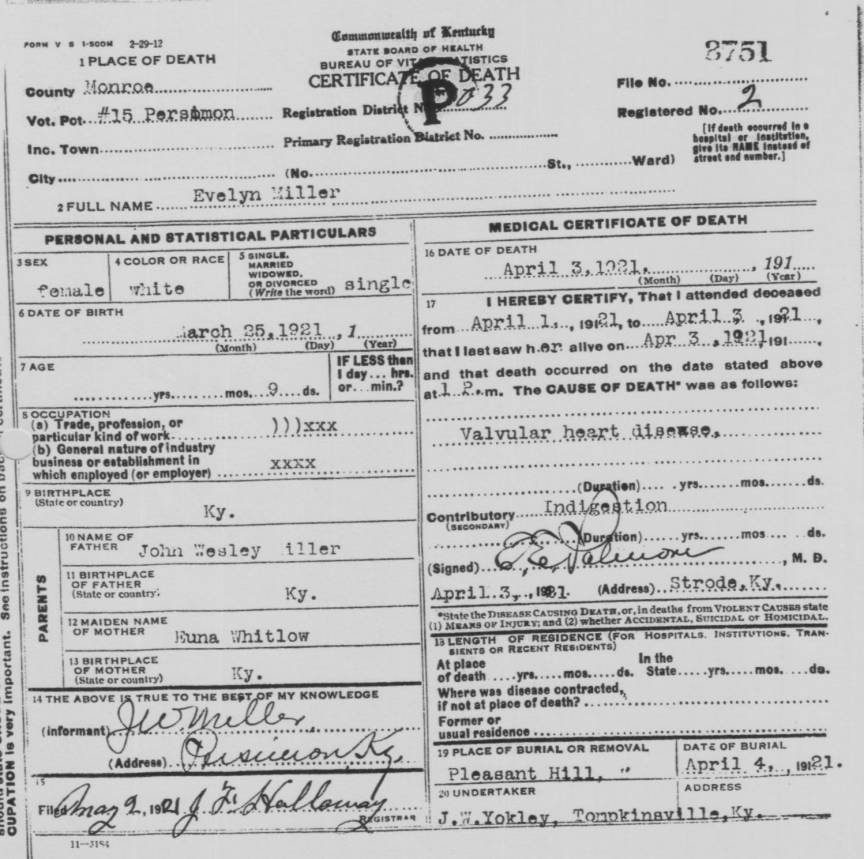 FORM V S 1-500M 2-29-12
Commonwealth of Kentucky
STATE BOARD OF HEALTH
BUREAU OF VITAL STATISTICS
CERTIFICATE OF DEATH
1 PLACE OF DEATH
County Monroe
Vot. Pct. #15 Persimmon
Inc. Town
City
Registration District No. 1033
P
Primary Registration District No.
(No. St., Ward)
8751
File No.
Registered No. 2
[If death occurred in a
hospital or institution,
give its NAME instead of
street and number.]
2 FULL NAME Evelyn Miller
PERSONAL AND STATISTICAL PARTICULARS
3 SEX
female
4 COLOR OR RACE
White
5 SINGLE,
MARRIED
WIDOWED,
OR DIVORCED
(Write the word) single
6 DATE OF BIRTH
arch 25, 1921 , 1
(Month) (Day) (Year)
7 AGE
yrs. mos. 9 ds.
IF LESS than
1 day ... hrs.
or ... min.?
8 OCCUPATION
(a) Trade, profession, or
particular kind of work )))xxx
(b) General nature of industry
business or establishment in
which employed (or employer) xxxx
9 BIRTHPLACE
(State or country)
Ky.
PARENTS
10 NAME OF
FATHER John Wesley iller
11 BIRTHPLACE
OF FATHER
(State or country) Ky.
12 MAIDEN NAME
OF MOTHER Euna Whitlow
13 BIRTHPLACE
OF MOTHER
(State or country) Ky.
14 THE ABOVE IS TRUE TO THE BEST OF MY KNOWLEDGE
(informant) J W Miller,
(Address) Persimmon, Ky.
15
Filed May 2, 1921 J F Hallaway
REGISTRAR
11-3184
MEDICAL CERTIFICATE OF DEATH
16 DATE OF DEATH
April 3, 1921. , 191
(Month) (Day) (Year)
17 I HEREBY CERTIFY, That I attended deceased
from April 1. , 1921, to April 3 , 1921 ,
that I last saw her alive on Apr 3 , 1921 191 ,
and that death occurred on the date stated above
at 12. m. The CAUSE OF DEATH* was as follows:
Valvular heart disease,
(Duration) yrs. mos. ds.
Contributory Indigestion
(SECONDARY)
(Duration) yrs. mos. ds.
(Signed) , M. D.
April 3, , 1921. (Address) Strode, Ky.
*State the DISEASE CAUSING DEATH, or, in deaths from VIOLENT CAUSES state
(1) MEANS OF INJURY; and (2) whether ACCIDENTAL, SUICIDAL OR HOMICIDAL.
18 LENGTH OF RESIDENCE (FOR HOSPITALS, INSTITUTIONS, TRAN-
SIENTS OR RECENT RESIDENTS)
At place In the
of death yrs. mos. ds. State yrs. mos. ds.
Where was disease contracted,
if not at place of death?
Former or
usual residence
19 PLACE OF BURIAL OR REMOVAL
Pleasant Hill, "
DATE OF BURIAL
April 4, , 1921.
20 UNDERTAKER
ADDRESS
J.W.Yokley, Tompkinsville, Ky.
CUPATION is very important. See instructions on back